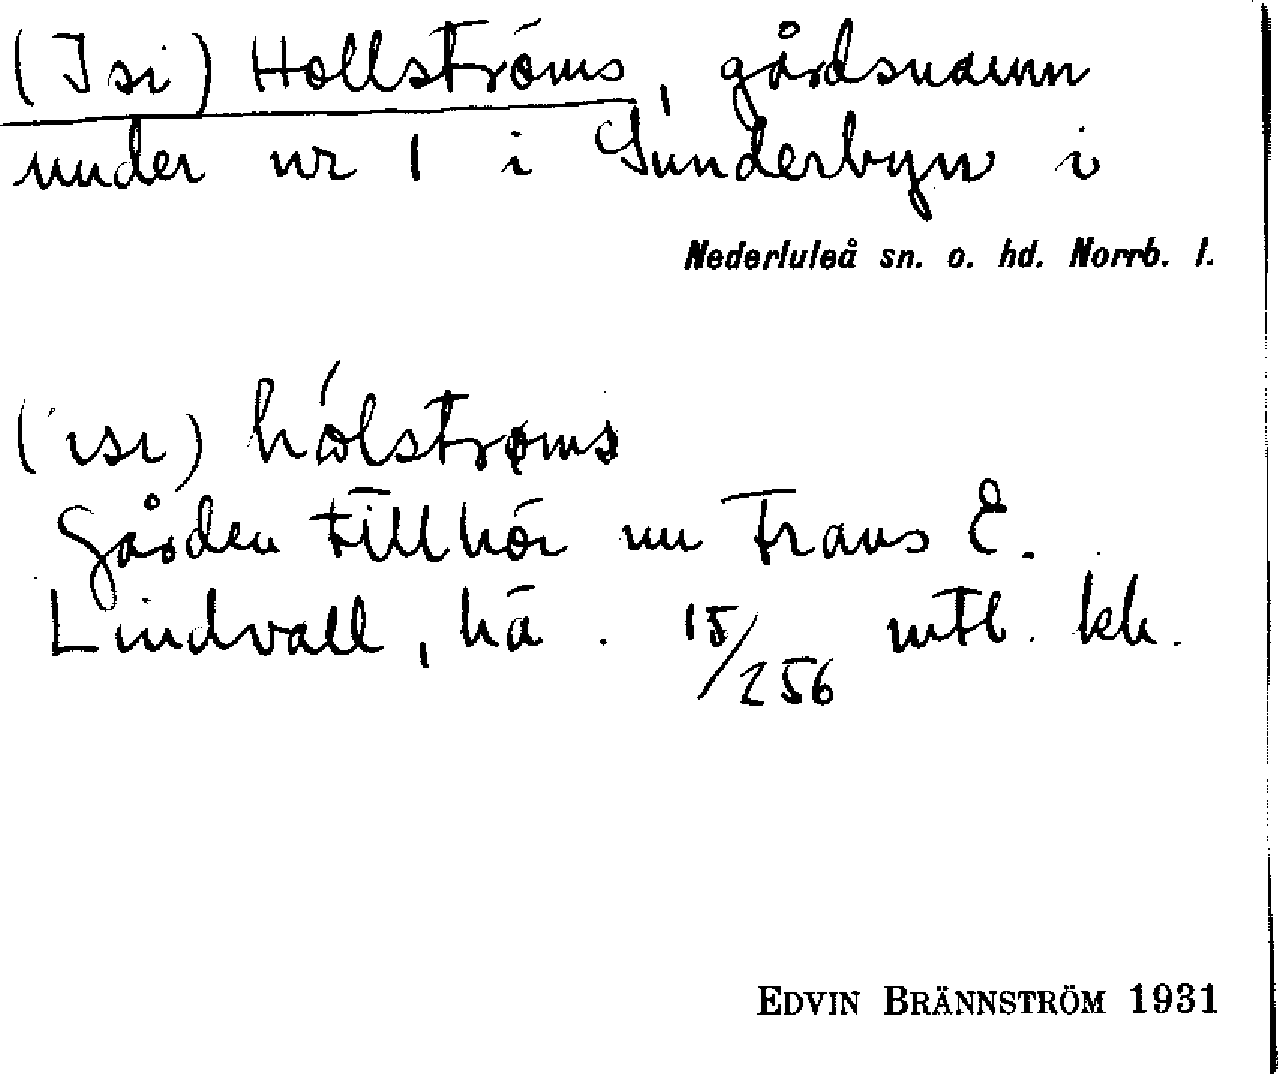 (Isi) Hollströms, gårdsnamn
under nr 1 i Sunderbyn i
Nederluleå sn. o. hd. Norrb. l.
(isi) hólstrøms
Gården tillhör nu Frans E.
Lindvall, hä. 15/256 mtl. kh.
EDVIN BRÄNNSTRÖM 1931